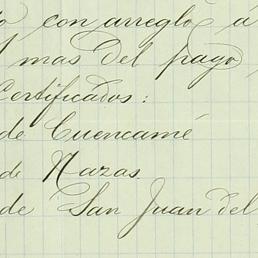 con arreglo á
mas del pago
Certificados:
de Cuencamé
de Nazas
de San Juan del